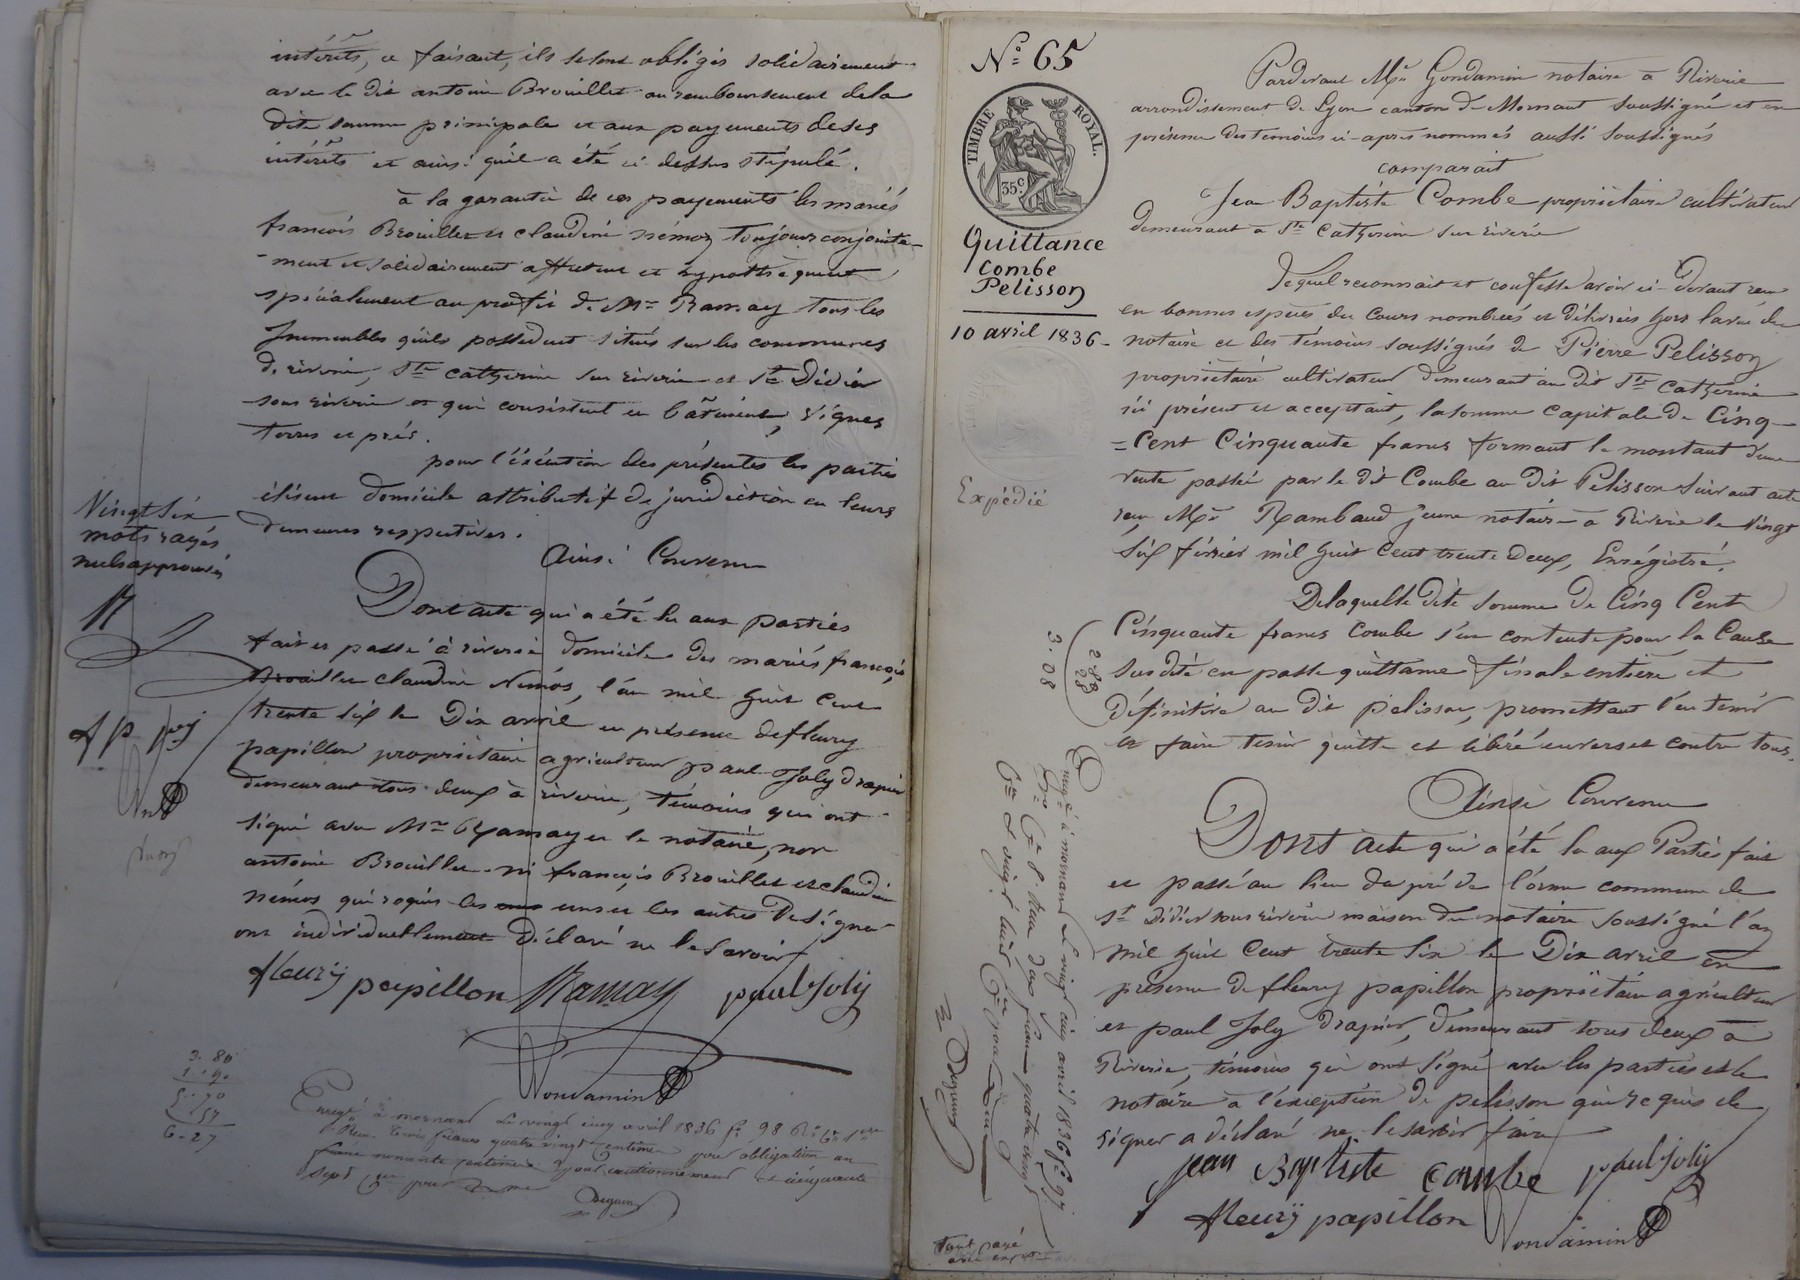 intérêts, ce faisant, ils se sont obligés solidairement
avec le dit antoine Brouillet au remboursement de la
dite somme principale et aux payements de ses
intérêts et ainsi qu'il a été ci dessus stipulé.
à la garantie de ces payements les mariés
francois Brouillet et claudine némoz toujours conjointe-
-ment et solidairement affectent et hypothèquent
spécialement au profit de Mr Ramay tous les
Immeubles qu'ils possedent situés sur les communes
de riverie, Ste catherine sur riverie et St Didier
sous riverie et qui consistent en bâtiments, vignes
terres et prés.
pour l'éxécution des présentes les parties
élisent domicile attributif de juridiction en leurs
demeures respectives.
Ainsi Convenu
Dont acte qui a été lu aux parties
fait et passé à riverie domicile des mariés francois
Brouillet claudine Némos, l'an mil huit cent
trente six le Dix avril en présence de fleury
papillon propriétaire agriculteur paul Joly drapier
demeurant tous deux à riverie, témoins qui ont
signé avec Mr Ramay et le notaire, non
antoine Brouillet ni françois Brouillet et claudine
némos qui requis les uns et les autres De signer
ont individuellement Déclaré ne le savoir
fleury papillon Ramay paul Joly
Gondamin
Vingt six
mots rayés
nuls approuvés
R
f p pj
3. 80
1. 90
5. 70
57
6. 27
Enregé à mornant le vingt cinq avril 1836 fo 98
Reçu trois francs quatre vingt centimes pour obligation un
franc nonante centimes pour cautionnement et cinquante
sept ces pour
Deguin
No 65
TIMBRE ROYAL.
35c
Quittance
Combe
Pelisson
10 avril 1836-
Expédié
Pardevant Me Gondamin notaire à Riverie
arrondissement de Lyon canton de Mornant soussigné et en
présence des témoins ci-après nommés aussi soussignés
comparait
Jean Baptiste Combe propriétaire cultivateur
demeurant à Ste Catherine sur riverie
Lequel reconnait et confesse avoir ci-devant reçu
en bonnes espèces du cours nombrées et délivrées hors la vue du
notaire et des témoins soussignés de Pierre Pelisson
propriétaire cultivateur demeurant au dit Ste Catherine
ici présent et acceptant, la somme capitale de Cinq-
=Cent Cinquante francs formant le montant d'une
vente passée par le dit Combe au dit Pelisson suivant acte
reçu Me Rambaud jeune notaire à Riverie le vingt
six février mil huit cent trente deux, Enrégistré.
De laquelle dite somme de Cinq Cent
Cinquante francs Combe s'en contente pour la Cause
susdite en passe quittance finale entière et
définitive au dit pelisson, promettant l'en tenir
et faire tenir quitte et libéré envers et contre tous.
Ainsi Convenu
Dont acte qui a été lu aux Parties fait
et passé au lieu du pré de l'orme commune de
St Didier sous riverie maison du notaire soussigné l'an
mil huit cent trente six le Dix avril en
présence de fleury papillon propriétaire agriculteur
et paul Joly drapier, demeurant tous deux à
Riverie, témoins qui ont signé avec les parties et le
notaire à l'éxception de pelisson qui requis de
signer a déclaré ne le savoir faire
jean Baptiste Combe paul Joly
fleury papillon Gondamin
280
28
3. 08
Enregé à mornant le vingt cinq avril 1836 fo 97
Reçu deux francs quatre vingt
ces et vingt huit ces pour
Deguin